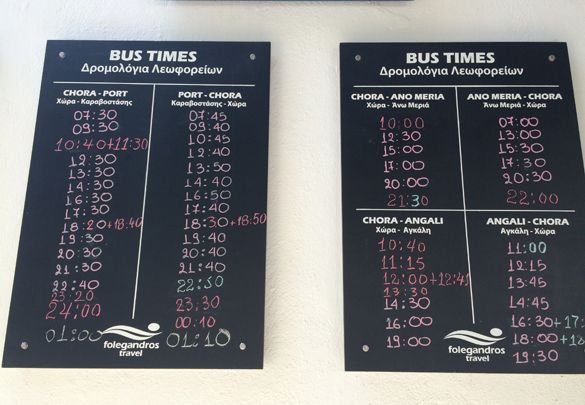 BUS TIMES
Δρομολόγια Λεωφορείων
CHORA - PORT
Χώρα - Καραβοστάσης
07:30
09:30
10:40+11:30
12:30
13:30
14:30
16:30
17:30
18:20+18:40
19:30
20:30
21:30
22:40
23:20
24:00
01:00
PORT - CHORA
Καραβοστάσης - Χώρα
07:45
09:40
10:45
12:40
13:50
14:40
16:50
17:40
18:30+18:50
19:40
20:40
21:40
22:50
23:30
00:10
01:10
folegandros
travel
BUS TIMES
Δρομολόγια Λεωφορείων
CHORA - ANO MERIA
Χώρα - Άνω Μεριά
10:00
12:30
15:00
17:00
20:00
21:30
ANO MERIA - CHORA
Άνω Μεριά - Χώρα
07:00
13:00
15:30
17:30
20:30
22:00
CHORA - ANGALI
Χώρα - Αγκάλη
10:40
11:15
12:00+12:45
13:30
14:30
16:00
19:00
ANGALI - CHORA
Αγκάλη - Χώρα
11:00
12:15
13:45
14:45
16:30+17:
18:00+18:
19:30
folegandros
travel